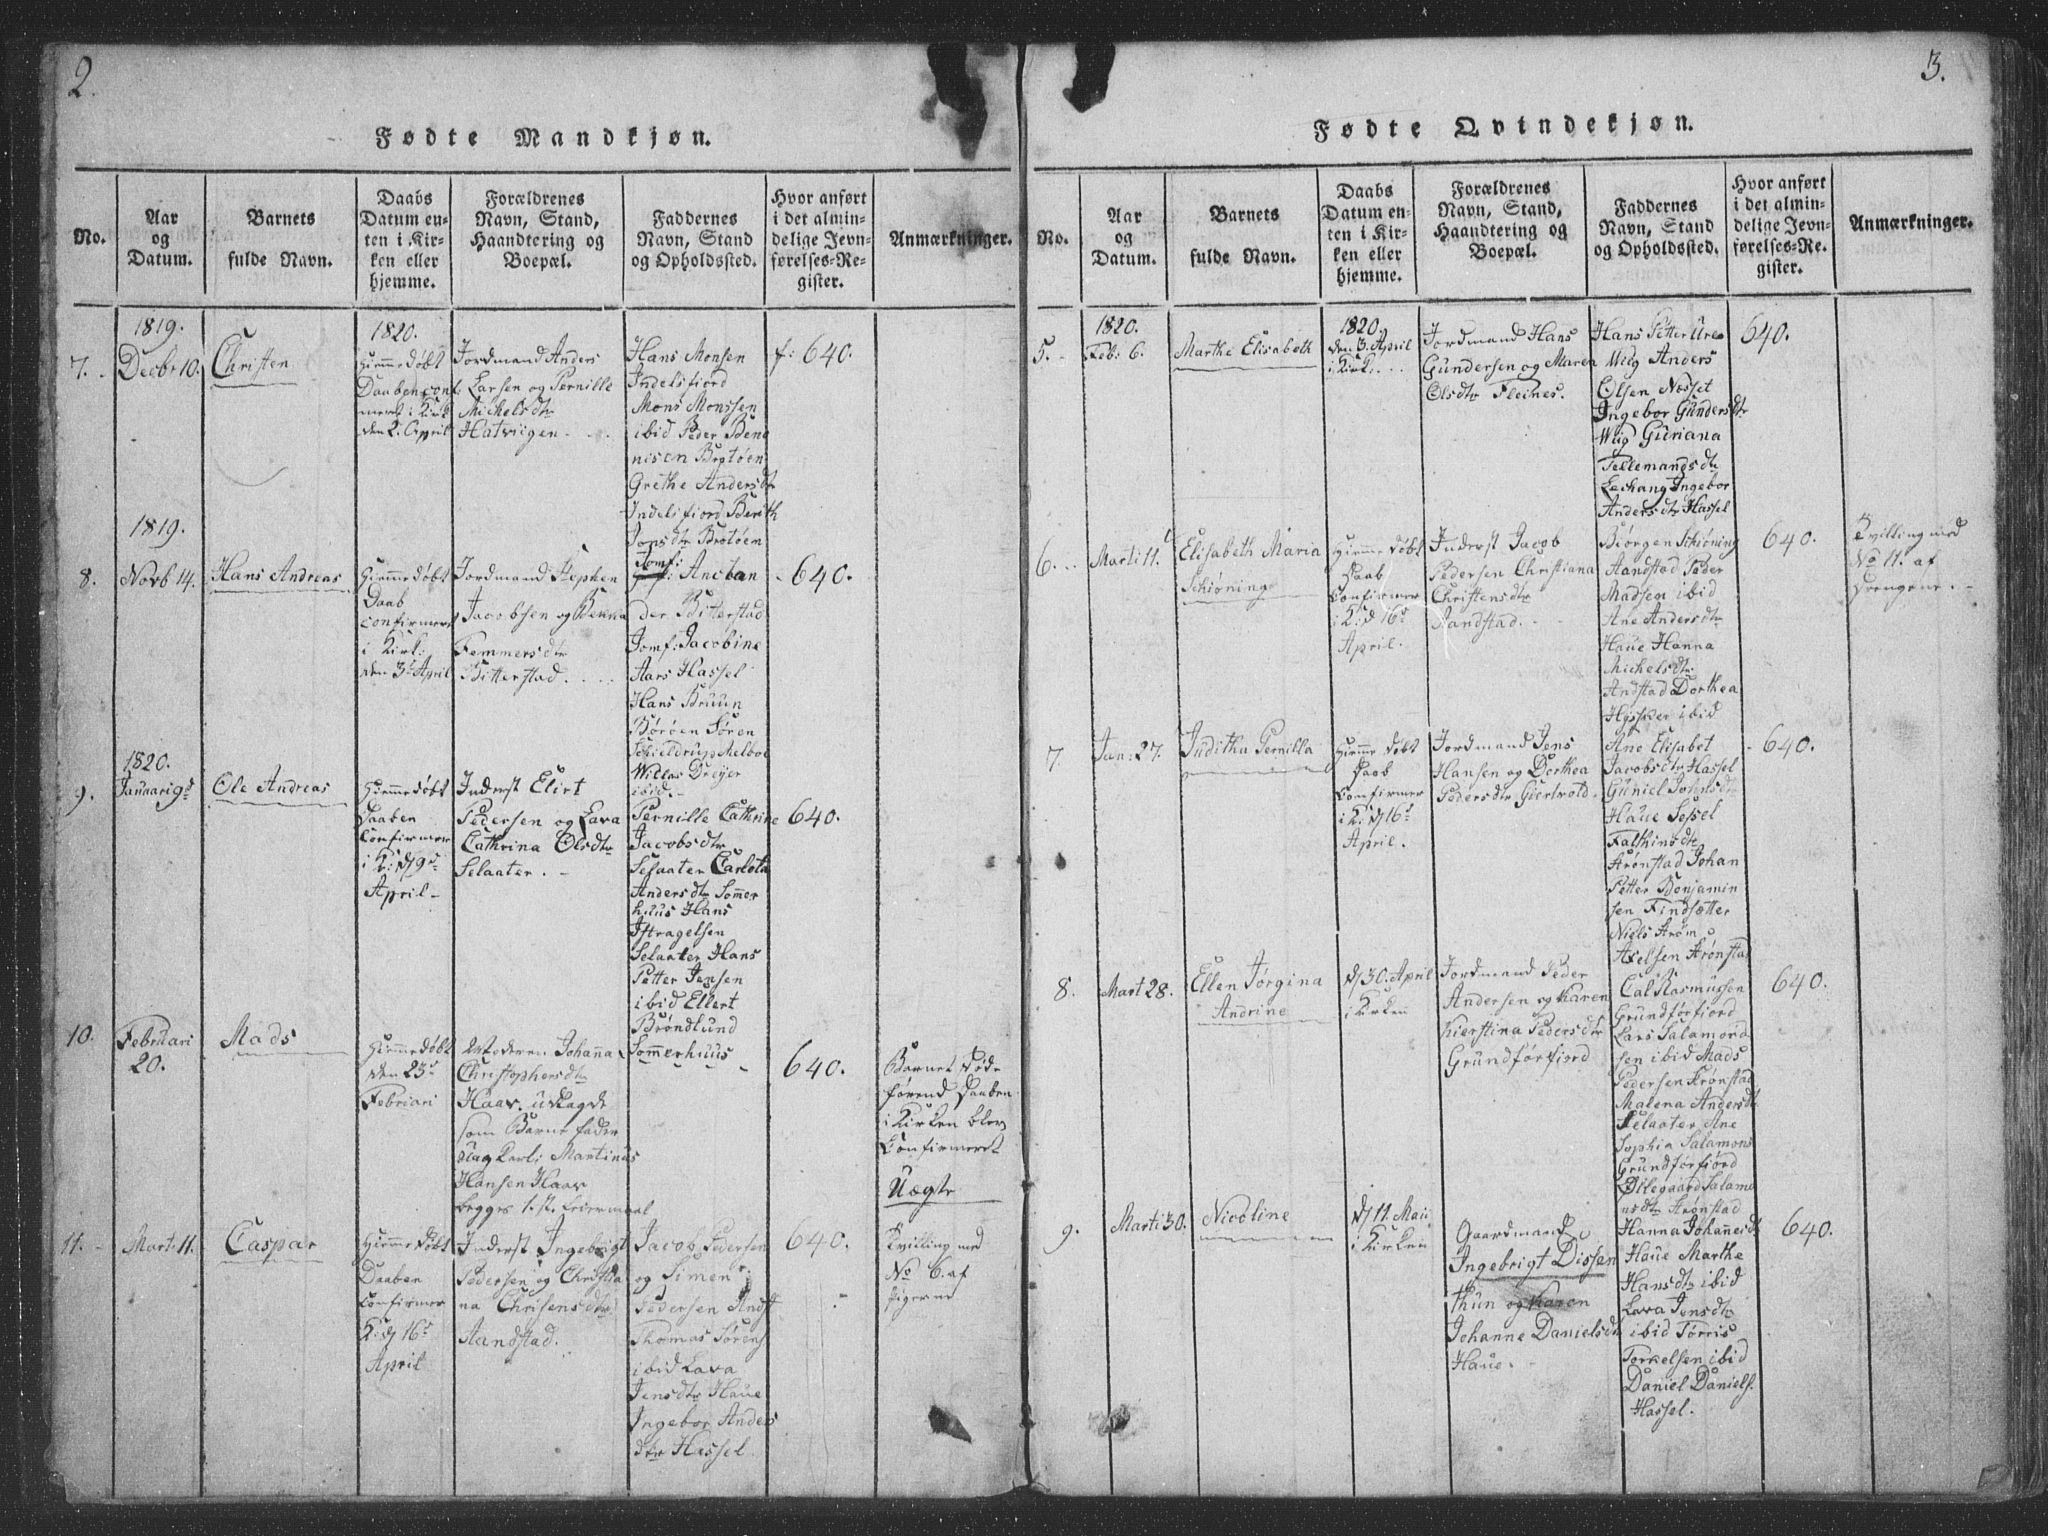 2.
Fødte Mandkjøn.
No.
Aar
og
Datum.
Barnets
fulde Navn.
Daabs
Datum en-
ten i Kir-
ken eller
hjemme.
Forældrenes
Navn, Stand,
Haandtering og
Boepæl.
Faddernes
Navn, Stand
og Opholdssted.
Hvor anført
i det almin-
delige Jevn-
førelses-Re-
gister.
Anmærkninger.
7.
1819.
Decbr 10.
Christen
1820.
Hiemmedøbt
Daaben conf
meret i Kirk
den 2. April
Jordmand Anders
Larsen og Pernille
Michelsdtr
Hatviigen
Hans Monsen
Indelsfiord
Mons Monssen
ibid Peder Ben
nisen Brotøen
Grethe Andersdtr
Indelsfiord Berith
Jonsdtr Brotøen
f: 640.
8.
1819.
Novb 14.
Hans Andreas
Hiemmedøbt
Daab
confirmert
i Kirk:
den 3d April
Jordmand Stephen
Jacobsen og Benna
Femmersdtr
Bitterstad
Jomf:
Anctan
der Bitterstad
Jomf: Jacobine
Aars Hassel
Hans Bruun
Børøen Søren
Schieldrup Melboe
Willas Dreÿer
ibid.
640.
9.
1820.
Januari 9d
Ole Andreas
Hiemmedøbt
Daaben
Confirmer
i K: d 9d
April
Inderst Elirt
Pedersen og Lava
Cathrina Olsdtr
Selaater.
Pernille Cathrine
Jacobsdtr
Selaater Carlota
Andersdtr Sommer
huus Hans
Istragelsen
Selaater Hans
Petter Jensen
ibid Ellert
Brøndlund
Sommerhuus
640.
10.
Februari
20.
Mads
Hiemmedøbt
den 23d
Februari
Moderen Johanna
Christophersdtr
Haav. udlagde
som Barne fader
Ungkarl: Martinus
Hansen Haav
begges 1. st. Leiermaal
640.
Barnet døde
førend Daaben
i Kirken blev
Confirmeret
Uægte
11.
Marti 11.
Caspar
Hiemmedøbt
Daaben
Confirmer
K: d 16d
April
Inderst Ingebrigt
Pedersen og Christia
na Chrisensdtr
Sandstad.
Jacob Pedersen
og Simen
Pedersen Andst
Thomas Sørens
ibid Lava
Jensdtr Haue
Ingebor Anders
dtr Hassel.
640.
Tvilling med
No 6. af
Pigerne
3.
Fødte Qvindekjøn.
No.
Aar
og
Datum.
Barnets
fulde Navn.
Daabs
Datum en-
ten i Kir-
ken eller
hjemme.
Forældrenes
Navn, Stand,
Haandtering og
Boepæl.
Faddernes
Navn, Stand
og Opholdssted.
Hvor anført
i det almin-
delige Jevn-
førelses-Re-
gister.
Anmærkninger.
5.
1820.
Feb: 6.
Marthe Elisabeth
1820.
den 3. April
i Kirk
Jordmand Hans
Gundersen og Maren
Olsdtr Fleines.
Hans Petter Ure
Wiig Anders
Olsen Næsset
Ingebor Gundersdtr
Wiig Guriana
Tellemandsdtr
Lechang Ingebor
Andersdtr Hassel
640.
6.
Marti 11.
Elisabeth Maria
Schiøning
Hiemmedøbt
Daab
Confirmer
i K: d 16d
April.
Inderst Jacob
Pedersen Christiana
Christensdtr
Sandstad.
Biørgen Schiøning
Sandstad Peder
Madsen ibid
Ane Andersdtr
Haue Hanna
Michelsdtr
Andstad Dorthea
Hysker ibid
640.
Tvilling med
No 11. af
Drengene.
7.
Jan: 27.
Juditha Pernilla
Hiemmedøbt
Daab
Confirmer
i K: d 16d
April.
Jordmand Jens
Hansen og Dorthea
Pedersdtr Giertvold.
Ane Elisabet
Jacobsdtr Hassel
Guniel Johnsdtr
Haue Sessel
Falthinsdtr
Strønstad Johan
Petter Benjamin
sen Findsætter
Niels Strøm
Axelsen Strønstad
640.
8.
Mart 28.
Ellen Jørgina
Andrine
d 30. April
i Kirken
Jordmand Peder
Andersen og Karen
Kierstina Pedersdtr
Grundførfiord
Cal Rasmussen
Grundførfiord
Lars Salamond
sen ibid Mads
Pedersen Strønstad
Malena Andersdtr
Selaater Ane
Sophia Salamons
Grundførfiord
Ollegaard Salamo
nsdtr Strønstad
640.
9.
Marti 30.
Nicoline
d 11. Mai
i Kirken
Gaardmand
Ingebrigt Dissen
thun og Karen
Johanne Danielsdtr
Haue.
Hanna Johannesdt
Haue Marthe
Hansdtr ibid
Lava Jensdtr
ibid Torris
Torkelsen ibid
Daniel Daniels.
Hassel.
640.